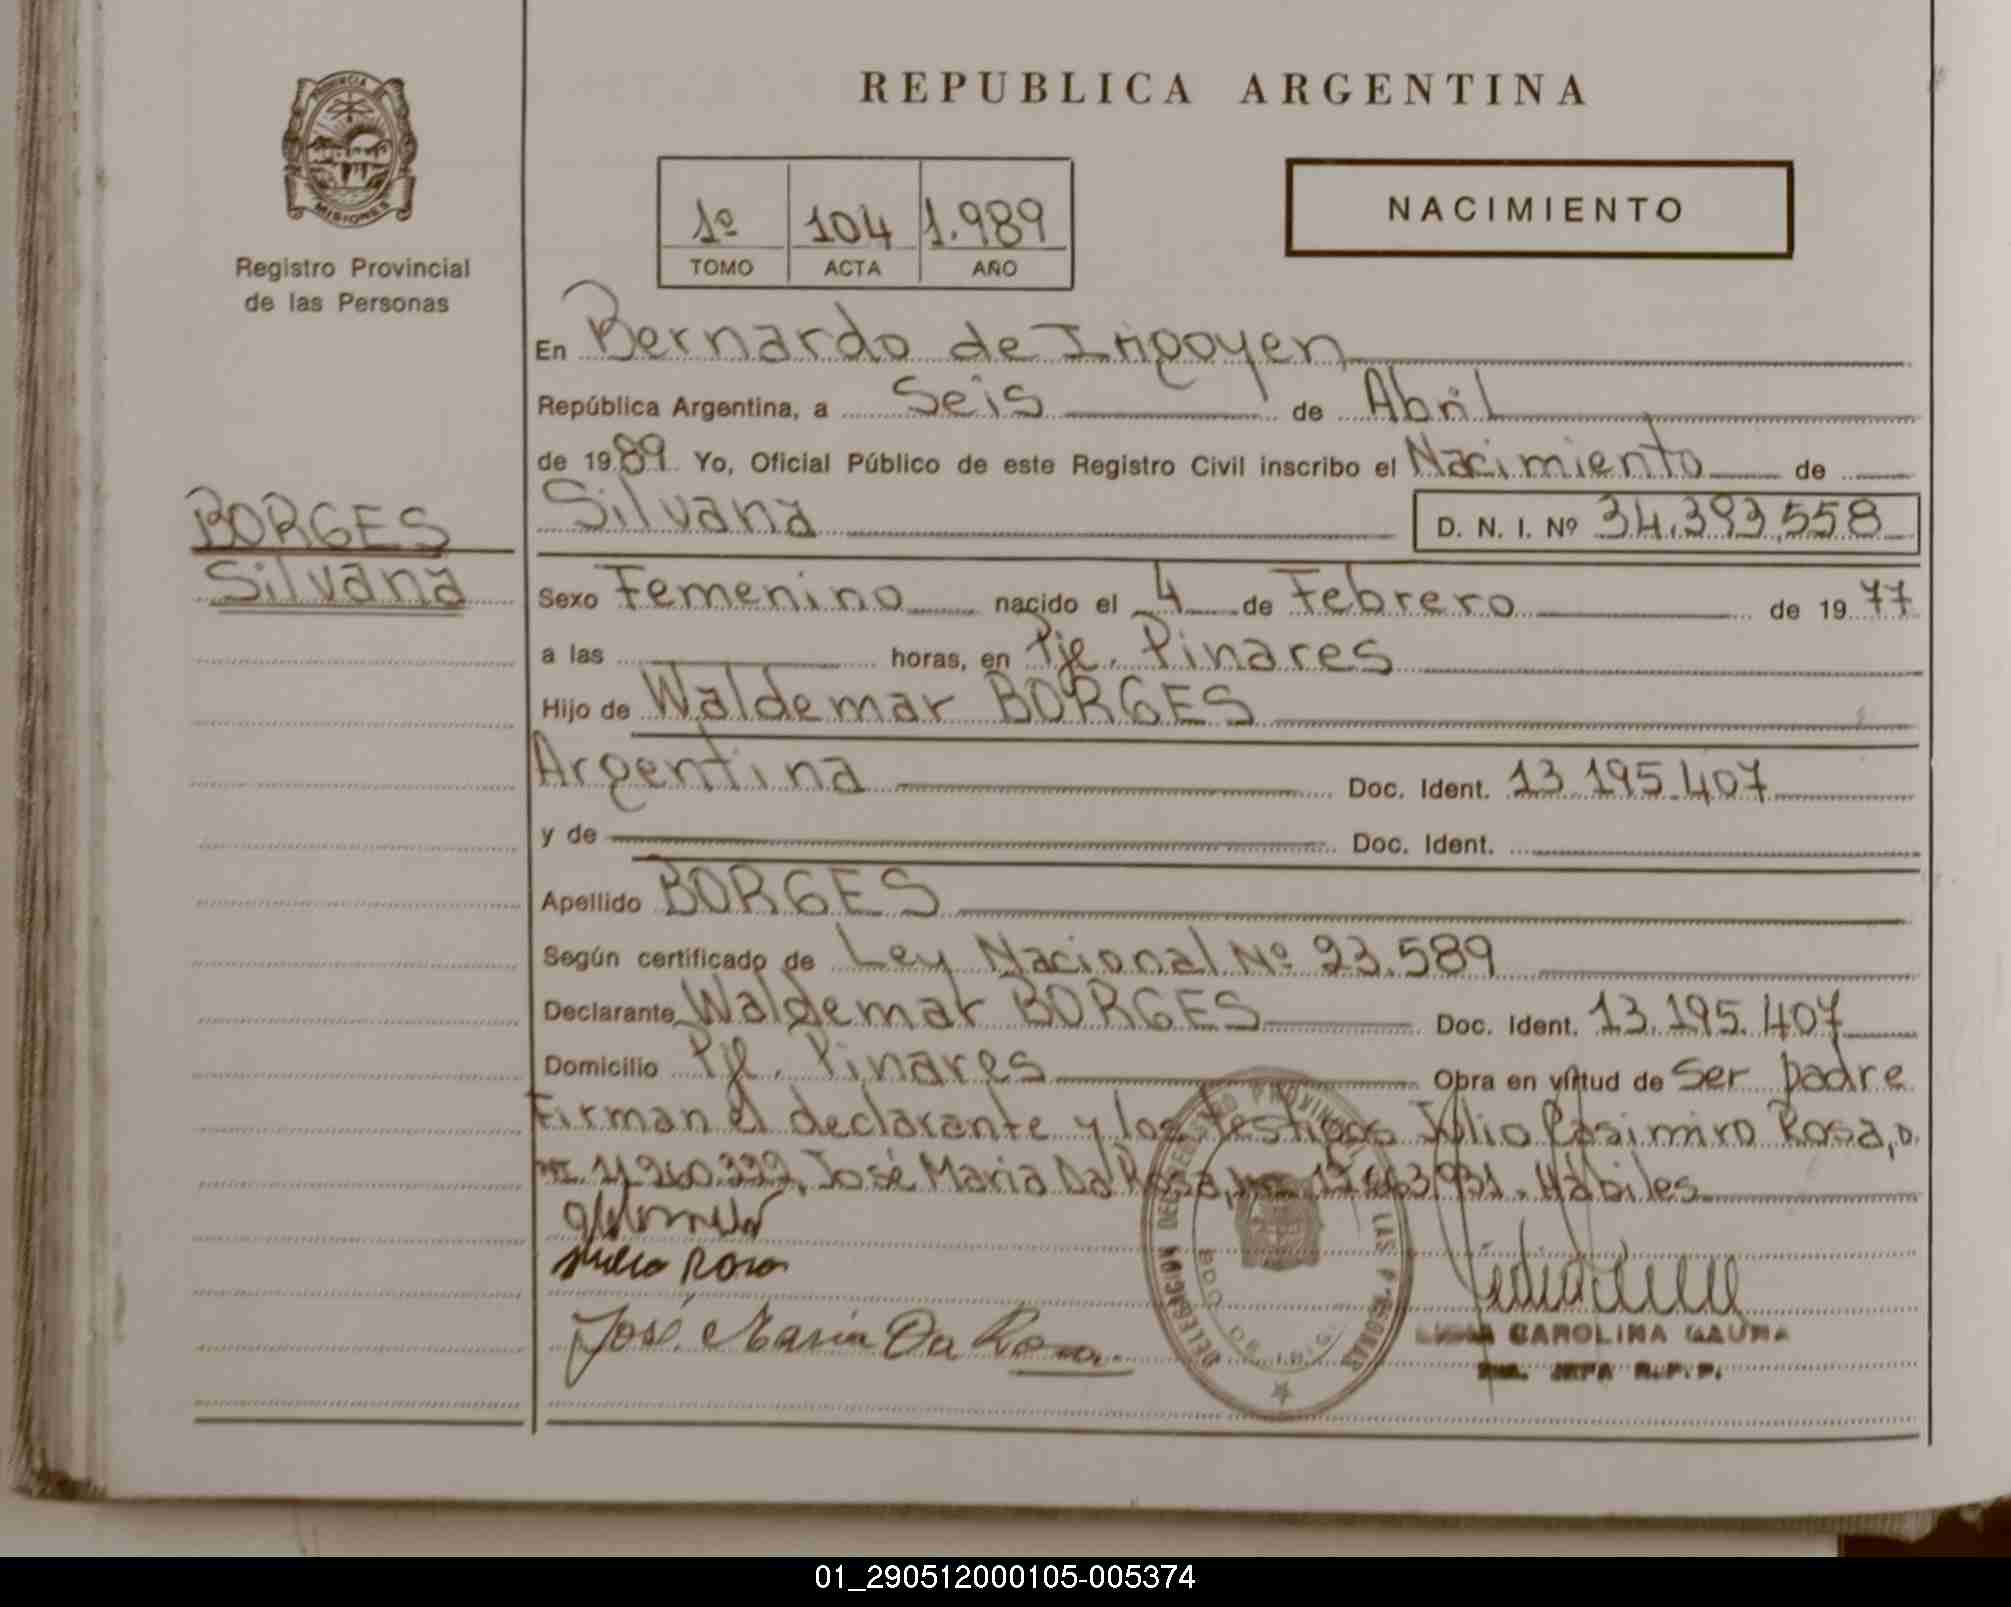 REPUBLICA ARGENTINA
PROVINCIA
MISIONES
Registro Provincial
de las Personas
1º 104 1.989
TOMO ACTA AÑO
NACIMIENTO
En Bernardo de Irigoyen
República Argentina, a Seis de Abril
de 1989 Yo, Oficial Público de este Registro Civil inscribo el Nacimiento de
BORGES
Silvana
Silvana D. N. I. Nº 34.393.558
Sexo Femenino nacido el 4 de Febrero de 1977
a las horas, en Pje. Pinares
Hijo de Waldemar BORGES
Argentina Doc. Ident. 13.195.407
y de Doc. Ident.
Apellido BORGES
Según certificado de Ley Nacional Nº 23.589
Declarante Waldemar BORGES Doc. Ident. 13.195.407
Domicilio Pje. Pinares Obra en virtud de Ser padre
Firman el declarante y los testigos Julio Casimiro Rosa, D.
José Maria Da Rosa, Hábiles
Julio Rosa
José Maria Da Rosa
DELEGACION DEL REGISTRO PROVINCIAL DE LAS PERSONAS
BDO. DE IRIG.
CAROLINA GAUNA
JEFA R.P.P.
01_290512000105-005374